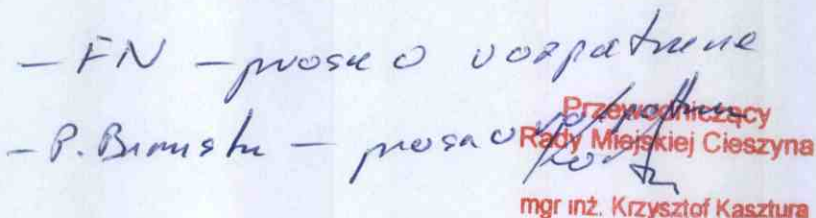 - FN - proszę o rozpatrzenie
- P. - proszę o
Przewodniczący
Rady Miejskiej Cieszyna
mgr inż. Krzysztof Kasztura